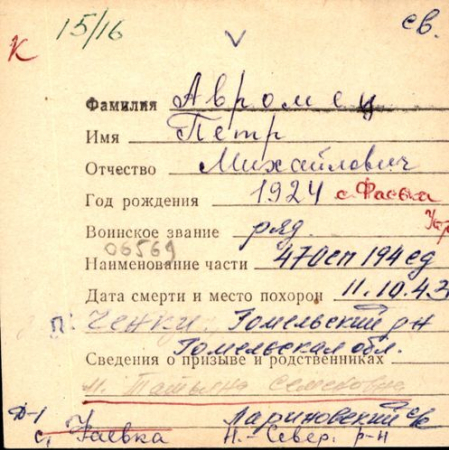 15/16 св.
К
Фамилия Авромец
Имя Петр
Отчество Михайлович
Год рождения 1924 с. Фаевка
Воинское звание ряд.
06569
Наименование части 470 сп 194 сд
Дата смерти и место похорон 11.10.43
П: Ченки. Гомельский р-н
Гомельская обл.
Сведения о призыве и родственниках
м. Татьяна Семеновна
Д-1 Лариновский с/с
с. Фаевка Н.-Север. р-н